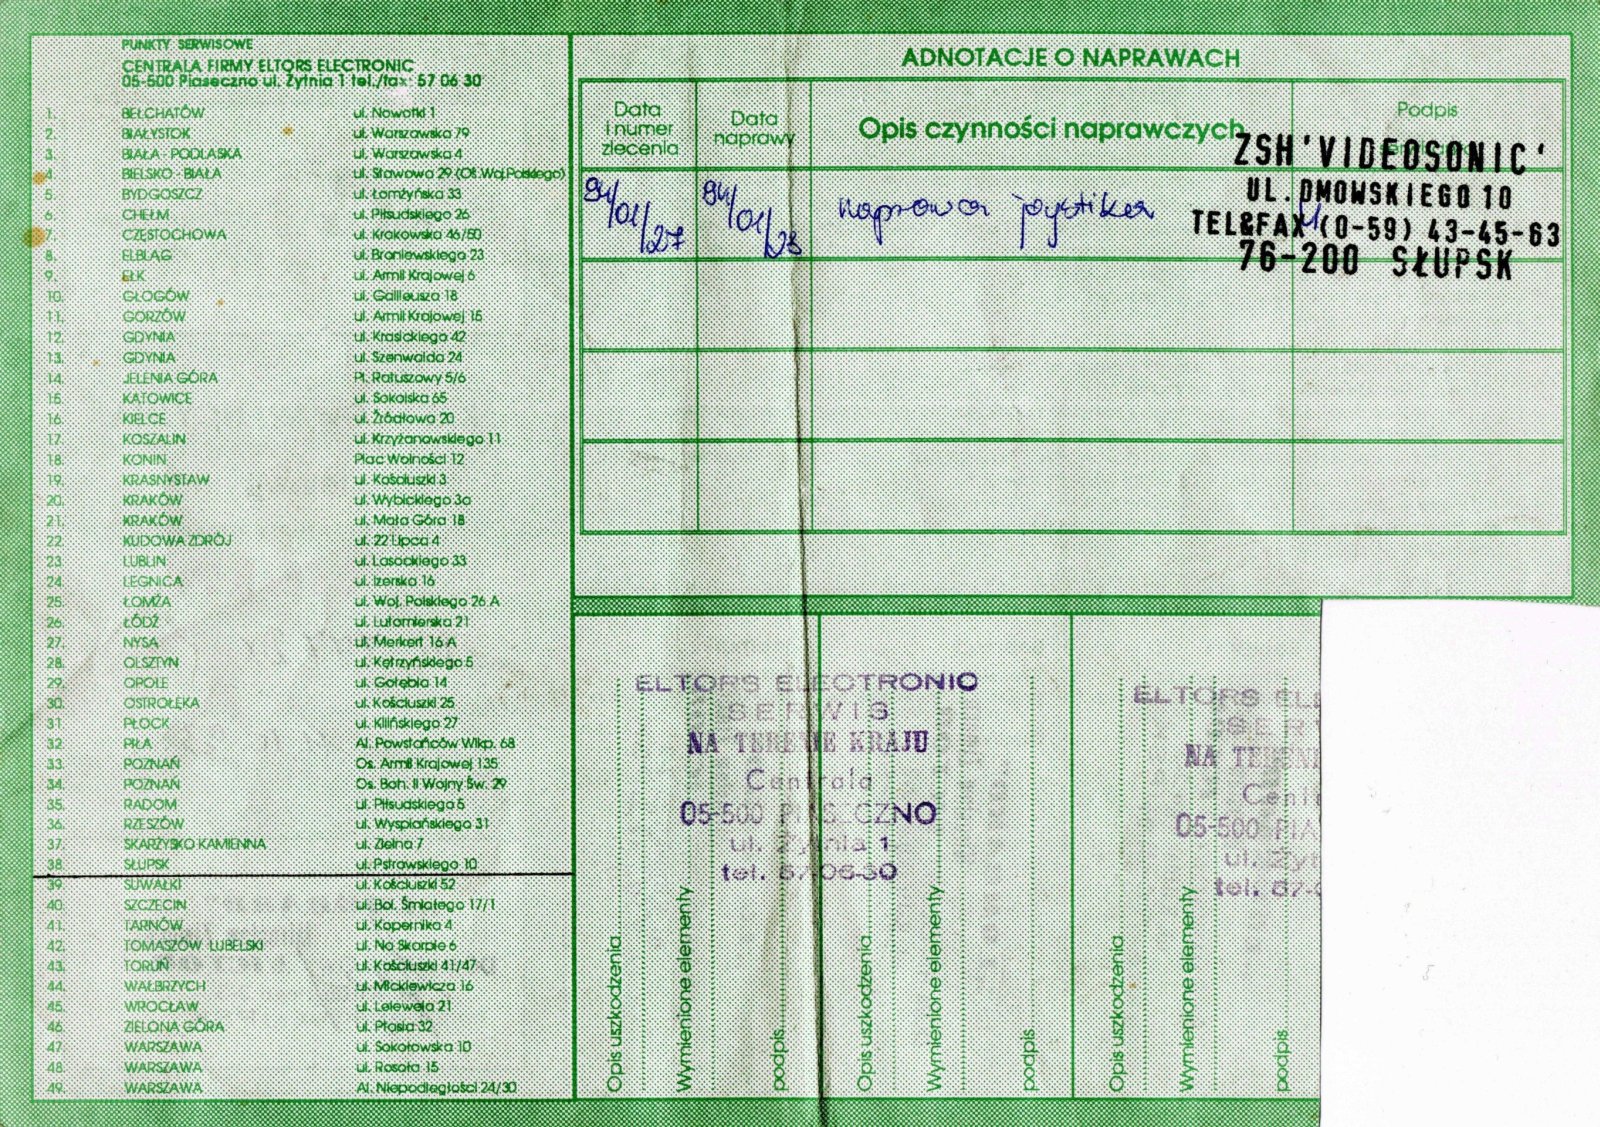 PUNKTY SERWISOWE
CENTRALA FIRMY ELTORS ELECTRONIC
05-500 Piaseczno ul. Żytnia 1 tel./fax: 57 06 30
1. BEŁCHATÓW ul. Nowotki 1
2. BIAŁYSTOK ul. Warszawska 79
3. BIAŁA - PODLASKA ul. Warszawska 4
4. BIELSKO - BIAŁA ul. Stawowa 29 (Oś. Woj. Polskiego)
5. BYDGOSZCZ ul. Łomżyńska 33
6. CHEŁM ul. Piłsudskiego 26
7. CZĘSTOCHOWA ul. Krakowska 46/50
8. ELBLĄG ul. Broniewskiego 23
9. EŁK ul. Armii Krajowej 6
10. GŁOGÓW ul. Galileusza 18
11. GORZÓW ul. Armii Krajowej 15
12. GDYNIA ul. Krasickiego 42
13. GDYNIA ul. Szenwalda 24
14. JELENIA GÓRA Pl. Ratuszowy 5/6
15. KATOWICE ul. Sokolska 65
16. KIELCE ul. Źródłowa 20
17. KOSZALIN ul. Krzyżanowskiego 11
18. KONIN Plac Wolności 12
19. KRASNYSTAW ul. Kościuszki 3
20. KRAKÓW ul. Wybickiego 3a
21. KRAKÓW ul. Mała Góra 18
22. KUDOWA ZDRÓJ ul. 22 Lipca 4
23. LUBLIN ul. Lasockiego 33
24. LEGNICA ul. Izerska 16
25. ŁOMŻA ul. Woj. Polskiego 26 A
26. ŁÓDŹ ul. Lutomierska 21
27. NYSA ul. Merkert 16 A
28. OLSZTYN ul. Kętrzyńskiego 5
29. OPOLE ul. Gołębia 14
30. OSTROŁĘKA ul. Kościuszki 25
31. PŁOCK ul. Kilińskiego 27
32. PIŁA Al. Powstańców Wlkp. 68
33. POZNAŃ Os. Armii Krajowej 135
34. POZNAŃ Os. Boh. II Wojny Św. 29
35. RADOM ul. Piłsudskiego 5
36. RZESZÓW ul. Wyspiańskiego 31
37. SKARŻYSKO KAMIENNA ul. Zielna 7
38. SŁUPSK ul. Pstrowskiego 10
39. SUWAŁKI ul. Kościuszki 52
40. SZCZECIN ul. Bol. Śmiałego 17/1
41. TARNÓW ul. Kopernika 4
42. TOMASZÓW LUBELSKI ul. Na Skarpie 6
43. TORUŃ ul. Kościuszki 41/47
44. WAŁBRZYCH ul. Mickiewicza 16
45. WROCŁAW ul. Lelewela 21
46. ZIELONA GÓRA ul. Ptasia 32
47. WARSZAWA ul. Sokołowska 10
48. WARSZAWA ul. Rosoła 15
49. WARSZAWA Al. Niepodległości 24/30
ADNOTACJE O NAPRAWACH
Data i numer zlecenia
Data naprawy
Opis czynności naprawczych
Podpis
94/01/27 94/01/28 naprawa joystika
ZSH'VIDEOSONIC'
UL.DMOWSKIEGO 10
TEL&FAX (0-59) 43-45-63
76-200 SŁUPSK
ELTORS ELECTRONIC
SERWIS
NA TERENIE KRAJU
Centrala
05-500 PIASECZNO
ul. Żytnia 1
tel. 57-06-30
Opis uszkodzenia
Wymienione elementy
podpis
Opis uszkodzenia
Wymienione elementy
podpis
ELTORS EL
SERW
NA TERENI
Cent
05-500 PIA
ul. Żyt
tel. 57-
Opis uszkodzenia
Wymienione elementy
podpis